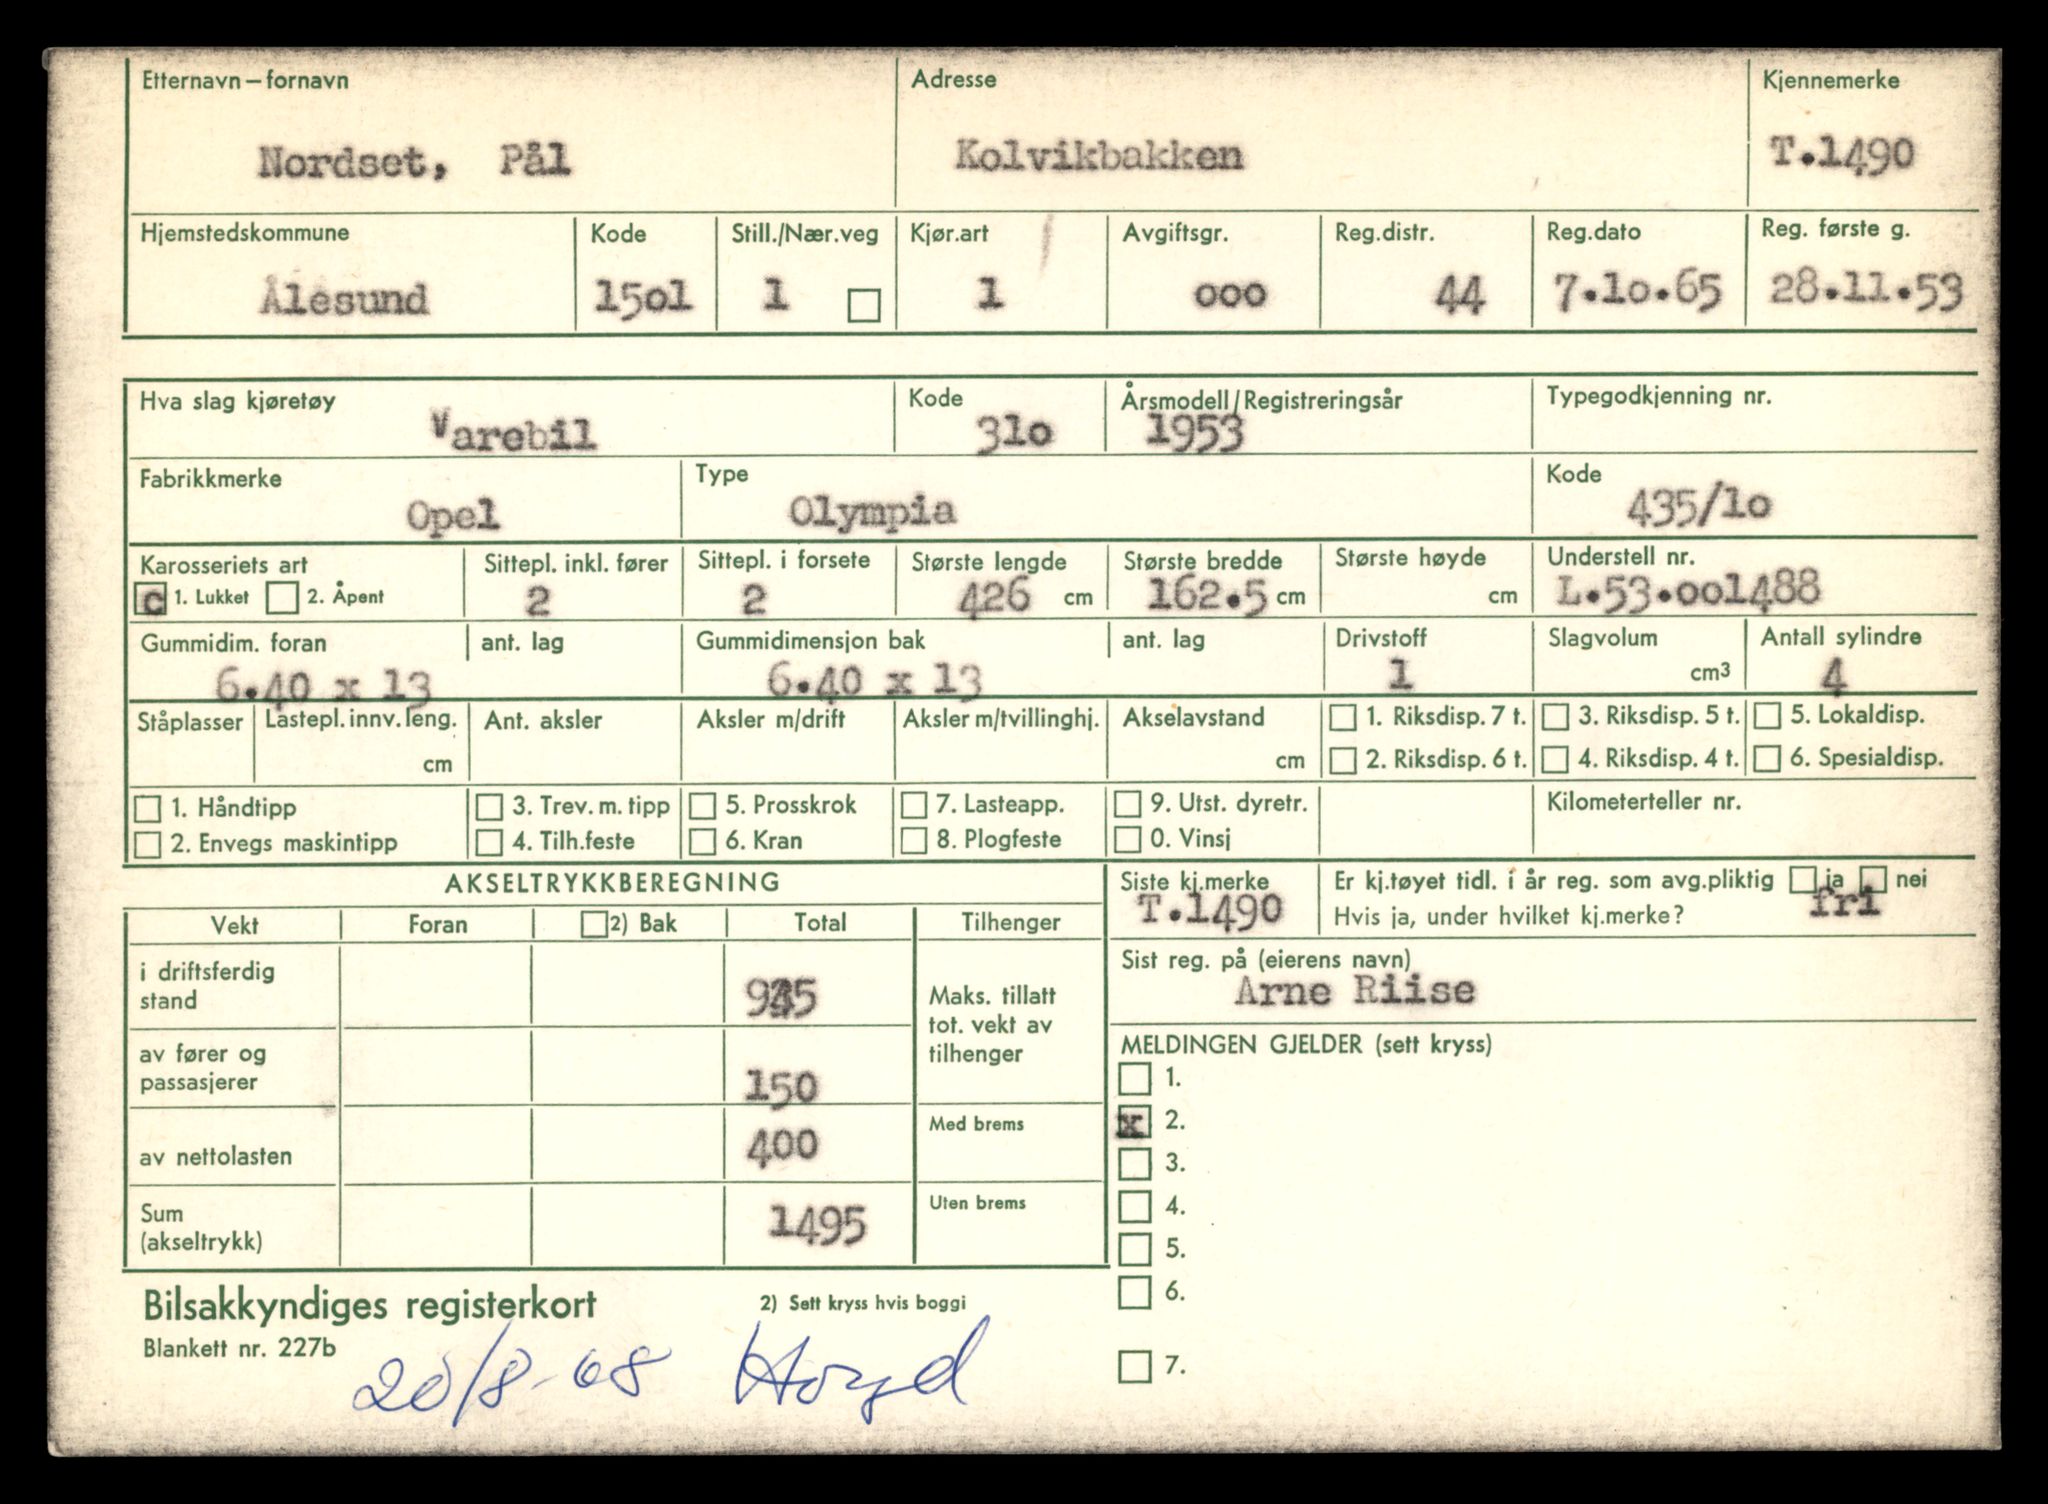 Etternavn – fornavn Adresse Kjennemerke
Nordset, Pål Kolvikbakken T.1490
Hjemstedskommune Kode Still./Nær.veg Kjør.art Avgiftsgr. Reg.distr. Reg.dato Reg. første g.
Ålesund 15o1 1 1 ooo 44 7.1o.65 28.11.53
Hva slag kjøretøy Kode Årsmodell/Registreringsår Typegodkjenning nr.
Varebil 31o 1953
Fabrikkmerke Type Kode
Opel Olympia 435/1o
Karosseriets art Sittepl. inkl. fører Sittepl. i forsete Største lengde Største bredde Største høyde Understell nr.
c 1. Lukket 2. Åpent 2 2 426 cm 162.5 cm cm L.53.oo1488
Gummidim. foran ant. lag Gummidimensjon bak ant. lag Drivstoff Slagvolum Antall sylindre
6.40 x 13 6.40 x 13 1 cm3 4
Ståplasser Lastepl. innv. leng. Ant. aksler Aksler m/drift Aksler m/tvillinghj. Akselavstand 1. Riksdisp. 7 t. 3. Riksdisp. 5 t. 5. Lokaldisp.
cm cm 2. Riksdisp. 6 t. 4. Riksdisp. 4 t. 6. Spesialdisp.
1. Håndtipp 3. Trev. m. tipp 5. Prosskrok 7. Lasteapp. 9. Utst. dyretr. Kilometerteller nr.
2. Envegs maskintipp 4. Tilh.feste 6. Kran 8. Plogfeste 0. Vinsj
AKSELTRYKKBEREGNING Siste kj.merke Er kj.tøyet tidl. i år reg. som avg.pliktig ja nei
T.1490 Hvis ja, under hvilket kj.merke? fri
Vekt Foran 2) Bak Total Tilhenger
Sist reg. på (eierens navn)
Arne Riise
i driftsferdig stand Maks. tillatt tot. vekt av tilhenger
av fører og passasjerer 150
MELDINGEN GJELDER (sett kryss)
1.
x 2.
3.
4.
5.
6.
7.
av nettolasten 400 Med brems
Sum (akseltrykk) 1495 Uten brems
Bilsakkyndiges registerkort 2) Sett kryss hvis boggi
Blankett nr. 227b
20/8-68